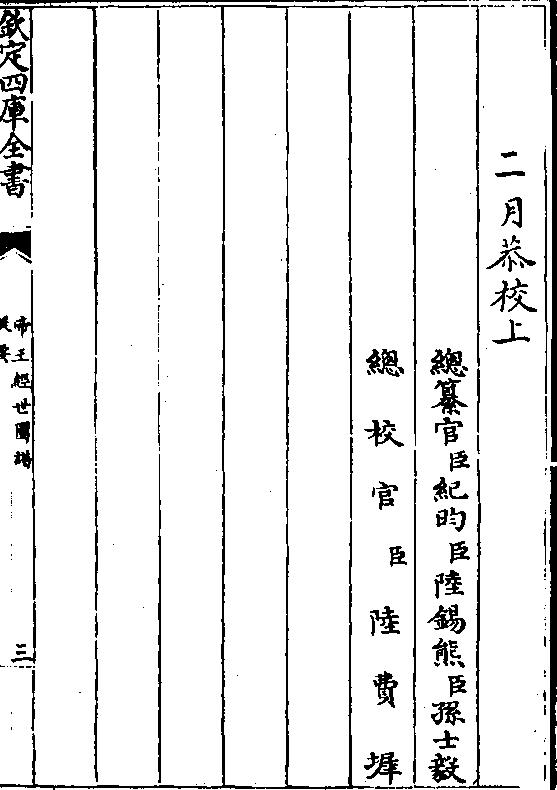 二月恭校上
總纂官臣紀昀臣陸錫熊臣孫士毅
總校官臣陸費墀
欽定四庫全書
帝王經世圖譜
提要
三